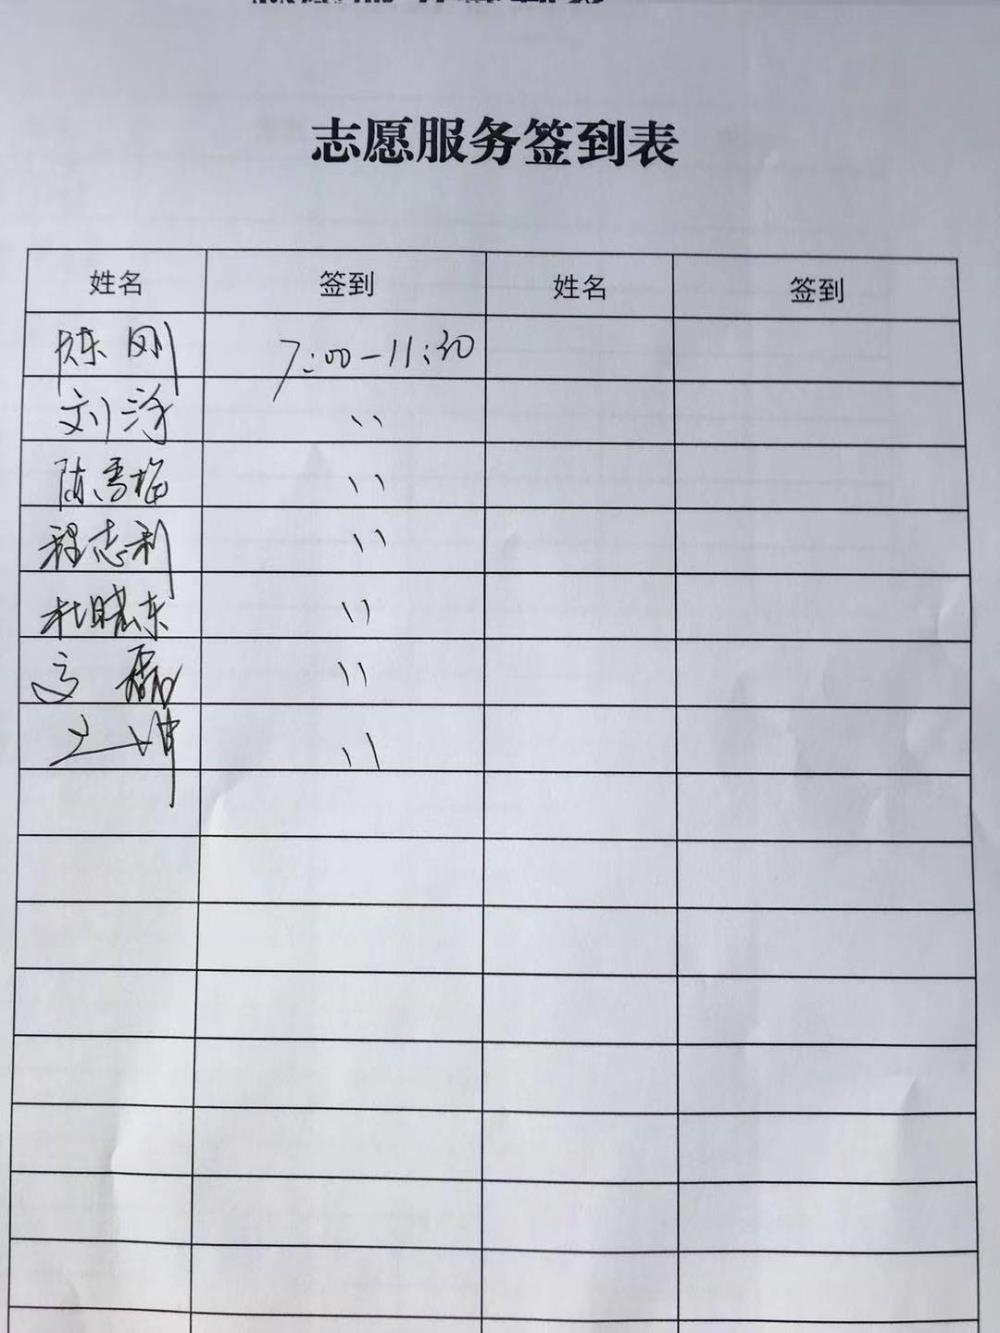 志愿服务签到表
姓名 签到 姓名 签到
陈刚 7:00-11:30
刘 〃
陈秀梅 〃
程志利 〃
杜晓东 〃
〃
〃